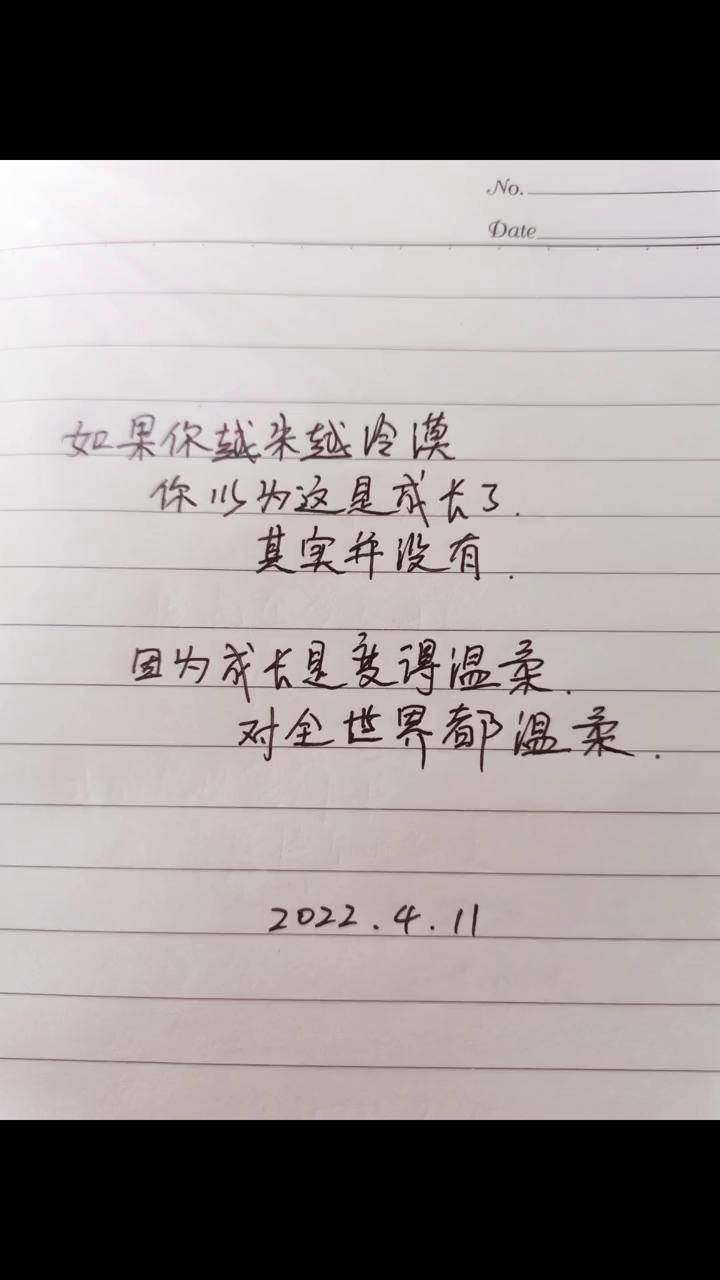 No.
Date
如果你越来越冷漠
你以为这是成长了.
其实并没有.
因为成长是变得温柔.
对全世界都温柔.
2022.4.11